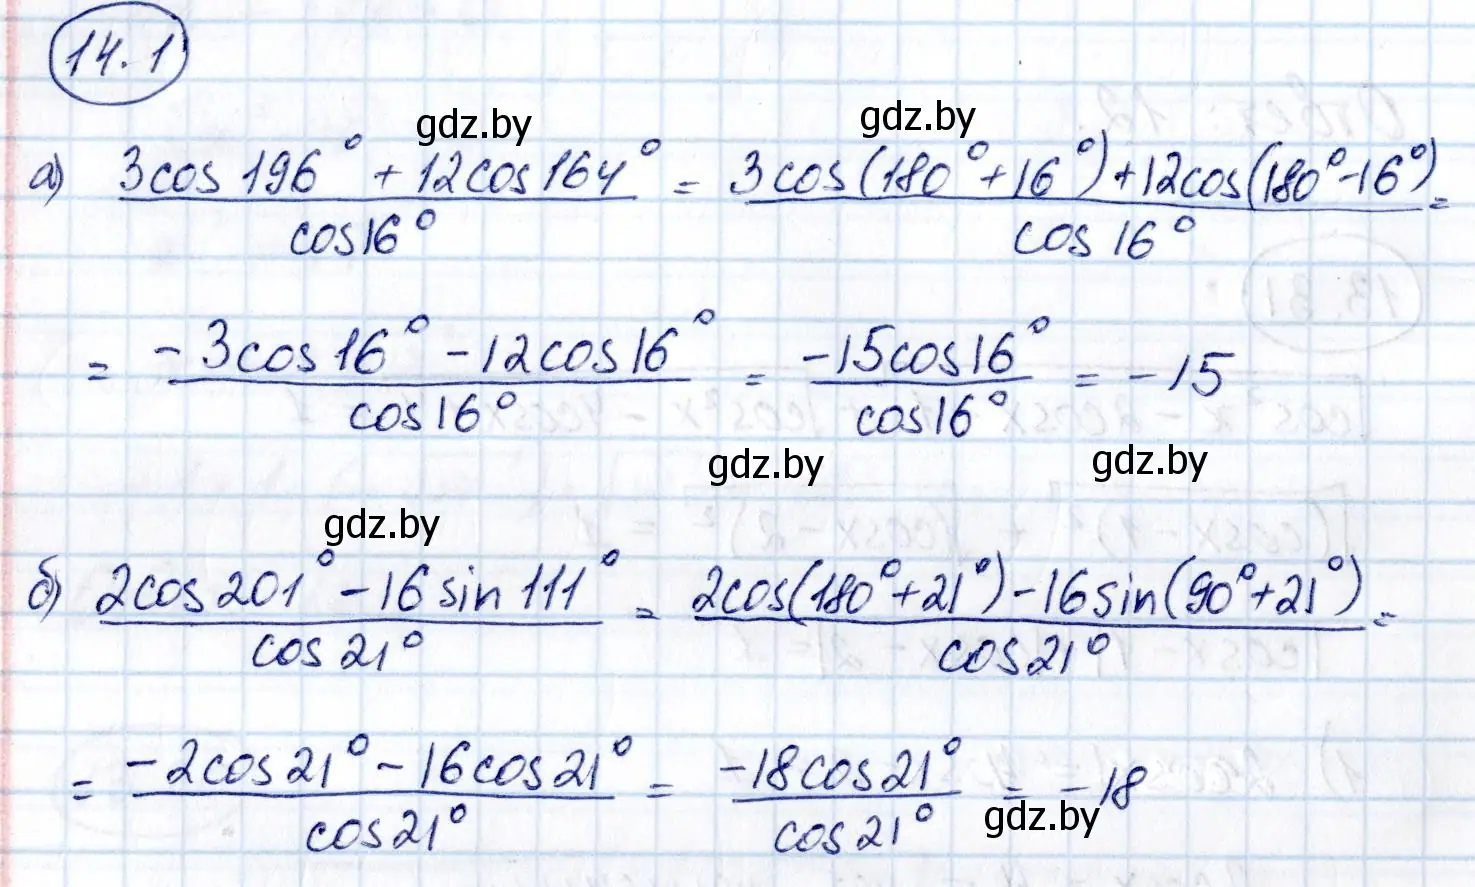 14.1
gdz.by gdz.by
а) (3cos196° + 12cos164°)/cos16° = (3cos(180°+16°)+12cos(180°-16°))/cos16° =
= (-3cos16° - 12cos16°)/cos16° = -15cos16°/cos16° = -15
gdz.by gdz.by
gdz.by
б) (2cos201° - 16sin111°)/cos21° = (2cos(180°+21°)-16sin(90°+21°))/cos21° =
= (-2cos21° - 16cos21°)/cos21° = -18cos21°/cos21° = -18
gdz.by